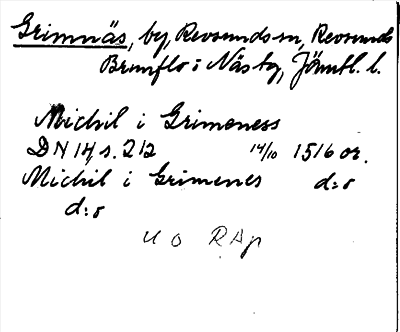 Grimnäs, by, Revsunds sn, Revsunds
Brunflo i Näs tg, Jämtl. l.
Michil i Grimeness
DN 14, s. 212 14/10 1516 or.
Michil i Grimenes d:o
d:o
U O RAp